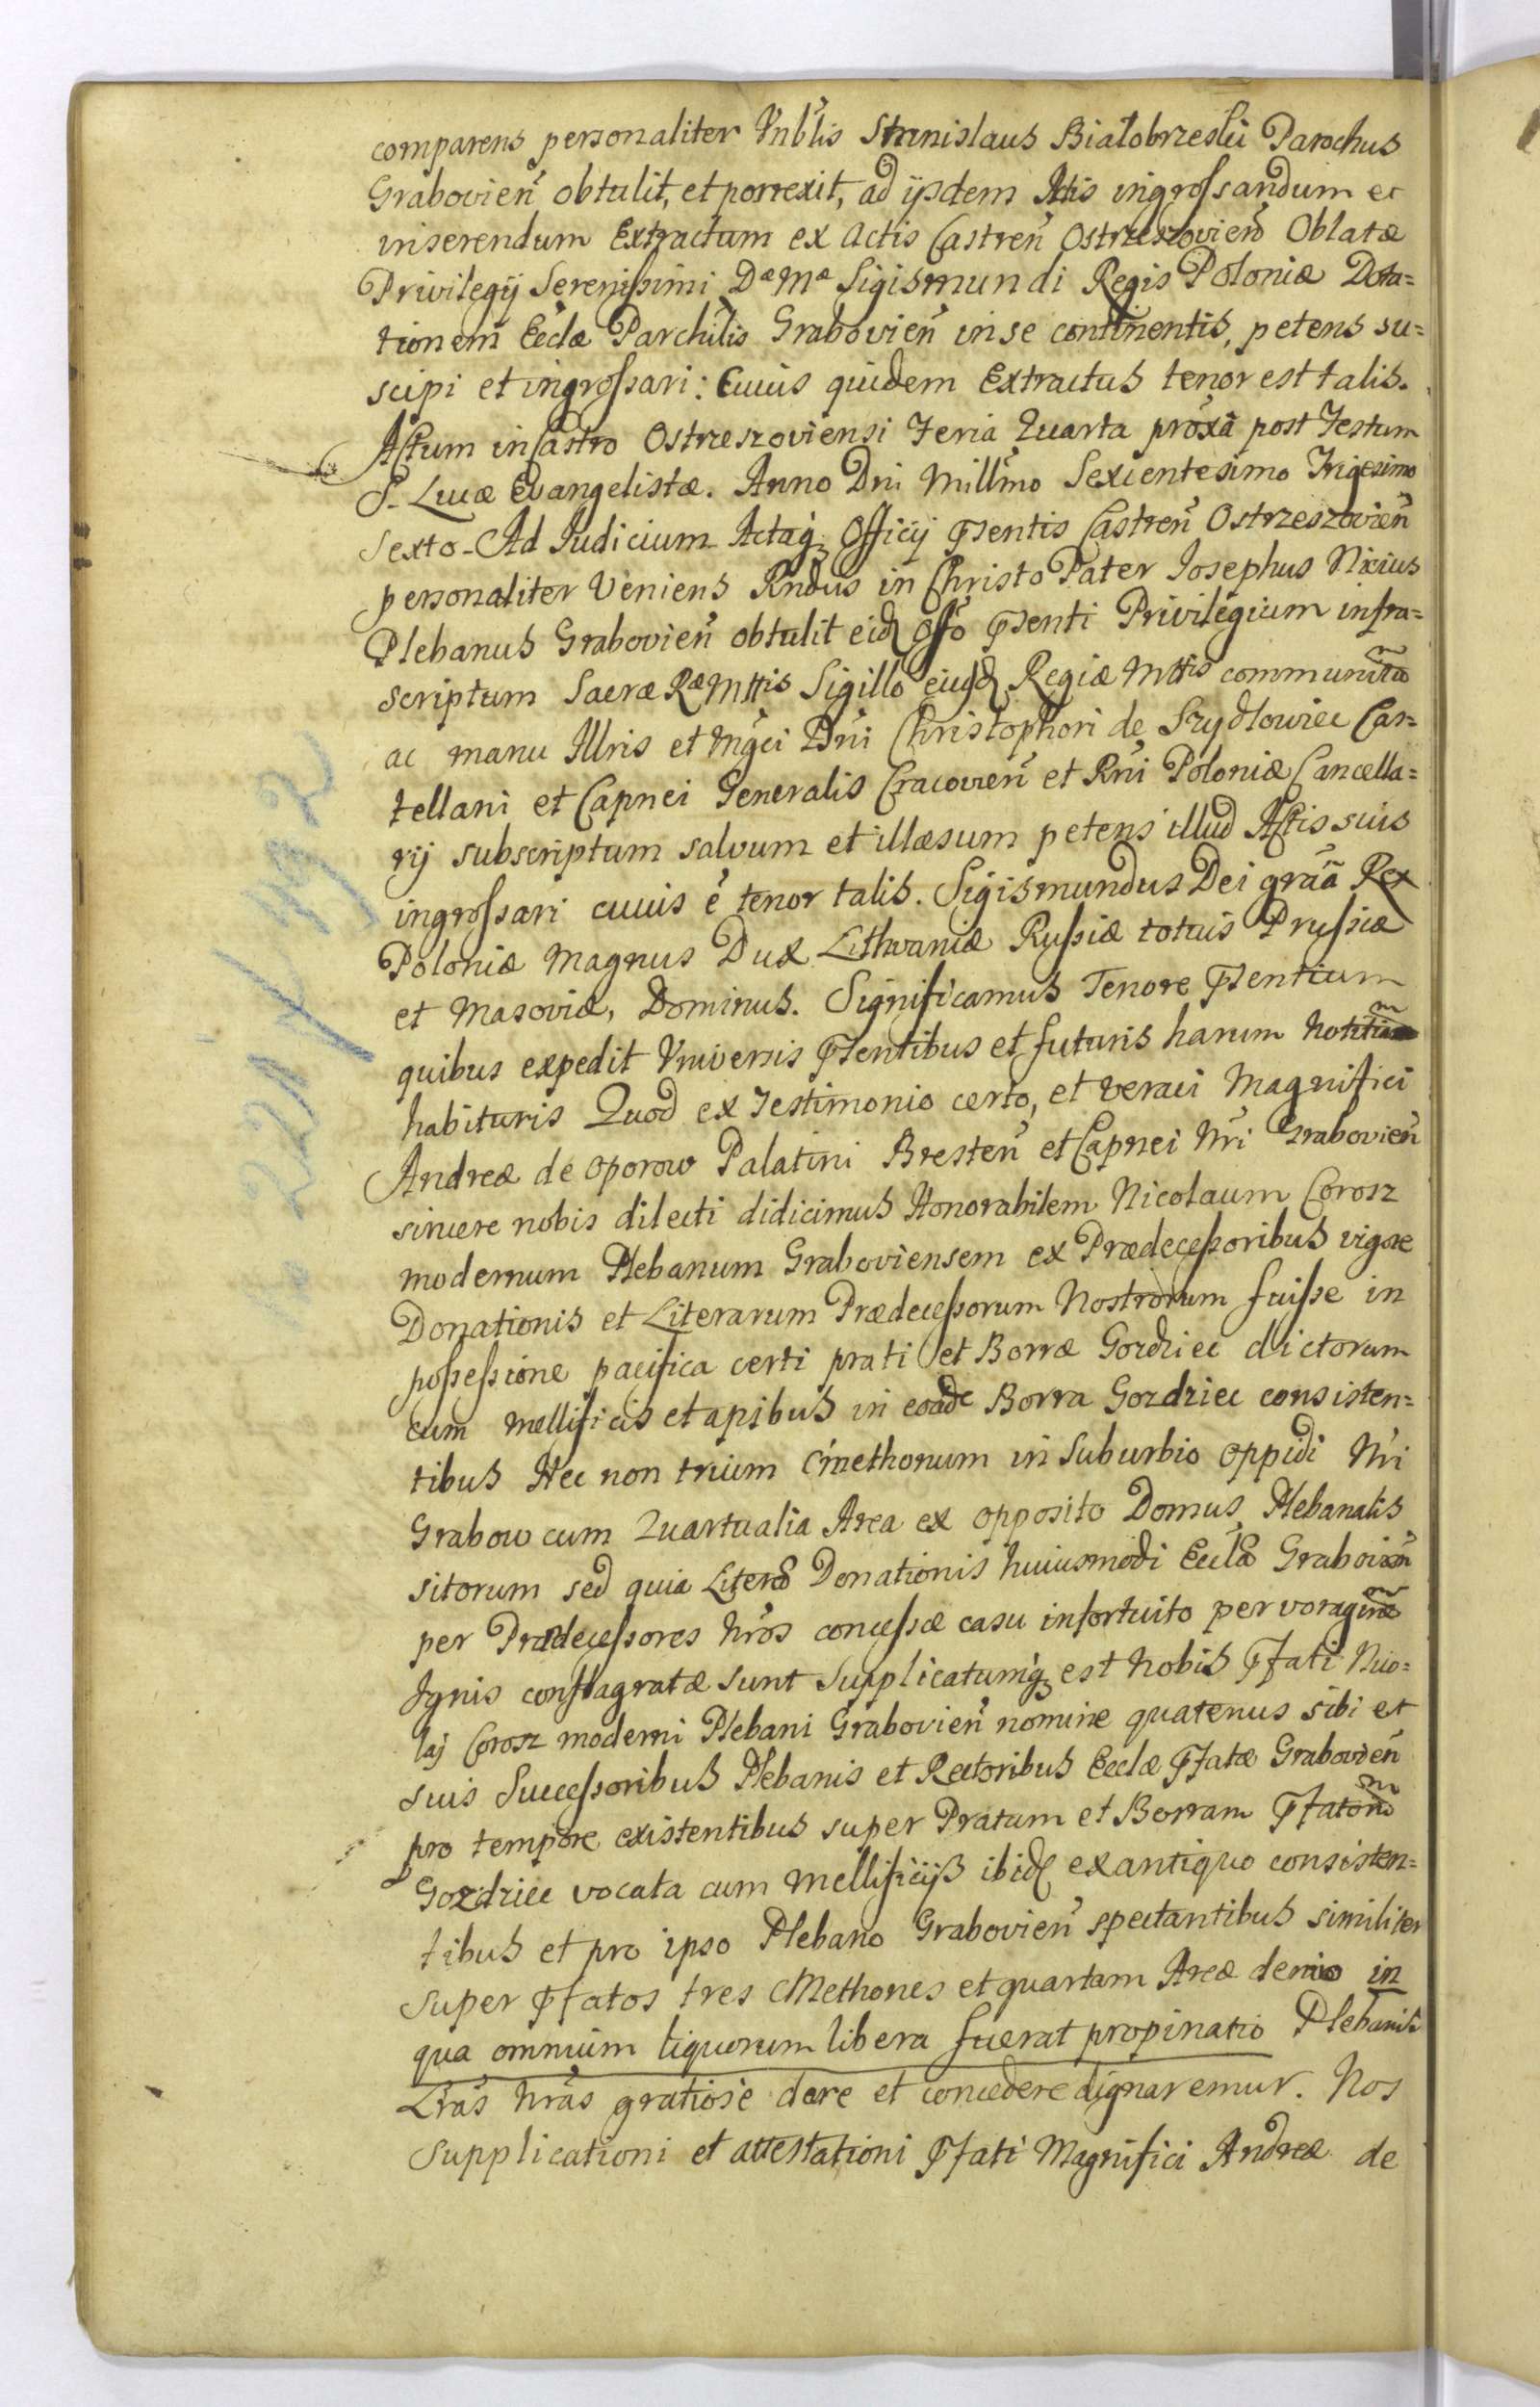 comparens personaliter Vnblis Stanislaus Białobrzeski Parochus
Grabovien̄ obtulit, et porrexit, ad ijsdem Actis ingrossandum et
inserendum Extractum ex Actis Castren̄ Ostrzeszovien̄ Oblatæ
Privilegij Serenissimi Dæ Mæ Sigismundi Regis Poloniæ Dota=
tionem Ecclæ Parchilis Grabovien̄ in se continentis, petens su=
scipi et ingrossari: Cuius quidem Extractus tenor est talis.
Actum in Castro Ostrzeszoviensi Feria Quarta proxa post Festum
S. Lucæ Evangelistæ. Anno Dni Millmo Sexcentesimo Trigesimo
Sexto. Ad Judicium Actaq₃ Officij Pꝛsentis Castren̄ Ostrzeszovien̄
personaliter Veniens Rndus in Christo Pater Josephus Nixius
Plebanus Grabovien̄ obtulit eid Offo Pꝛsenti Privilegium infra=
scriptum Sacræ Ræ Mttis Sigillo eiusd Regiæ Mttis communitū
ac manu Illris et Mgci Dni Christophori de Szydłowiec Cas=
tellani et Capnei Generalis Cracovien̄ et Rni Poloniæ Cancella=
rij subscriptum salvum et illæsum petens illud Actis suis
ingrossari cuius ē tenor talis. Sigismundus Dei graā Rex
Poloniæ Magnus Dux Lithvaniæ Russiæ totuis Prussiæ
et Masoviæ, Dominus. Significamus Tenore Pꝛsentium
quibus expedit Vniversis Pꝛsentibus et futuris harum Notitiam
habituris Quod ex Testimonio certo, et veraci Magnifici
Andreæ de Oporow Palatini Bresten̄ et Capnei Nri Grabovien̄
sincere nobis dilecti didicimus Honorabilem Nicolaum Corosz
modernum Plebanum Graboviensem ex Prædecessoribus vigore
Donationis et Literarum Prædecessorum Nostrorum fuisse in
possessione pacifica certi prati et Borræ Gozdziec dictorum
cum mellificiis et apibus in eoade Borra Gozdziec consisten=
tibus Nec non trium Cmethonum in Suburbio Oppidi Nri
Grabow cum Quartualia Area ex opposito Domus Plebanalis
sitorum sed quia Literæ Donationis huiusmodi Ecclæ Grabovien̄
per Prædecessores Nros concessæ casu infortuito per voraginē
Ignis conflagratæ sunt Supplicatumq₃ est Nobis Pꝛfati Nico=
laj Corosz moderni Plebani Grabovien̄ nomine quatenus sibi et
suis Successoribus Plebanis et Rectoribus Ecclæ Pꝛfatæ Grabovien̄
pro tempore existentibus super Pratum et Borram Pꝛfatorū
Gozdziec vocata cum mellificijs ibid ex antiquo consisten=
tibus et pro ipso Plebano Grabovien̄ spectantibus similiter
super Pꝛfatos tres Cmethones et quartam Areæ denuo in
qua omnium liquorum libera fuerat propinatio Plebanis
Lras Nras gratiose dare et concedere dignaremur. Nos
Supplicationi et attestationi Pꝛfati Magnifici Andreæ de